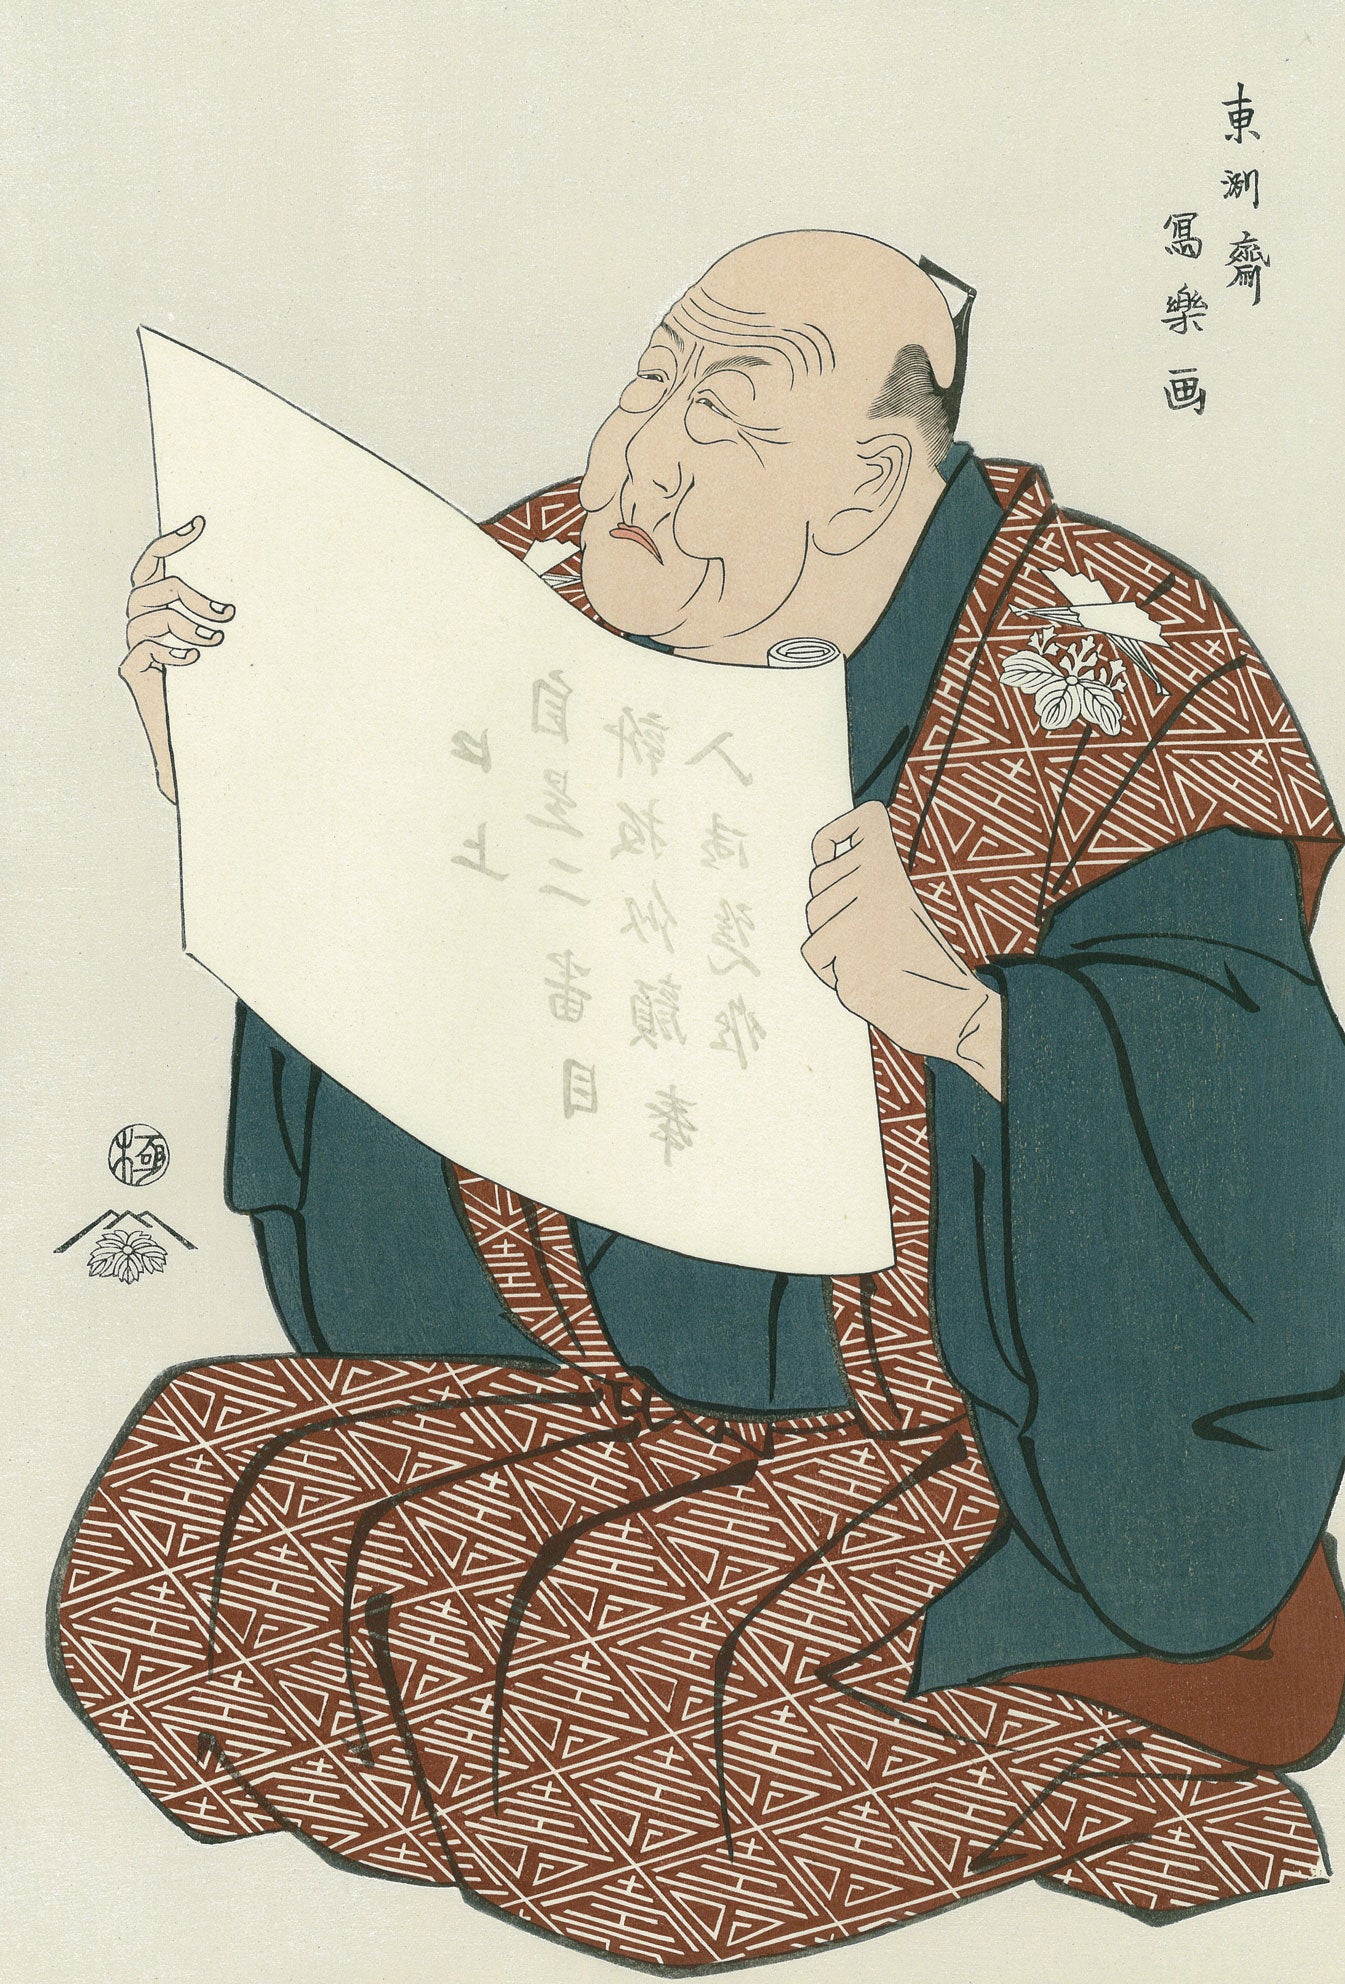 東洲齋
寫樂画
口上
自是二番目
新板似顔奉
入御覧候
極